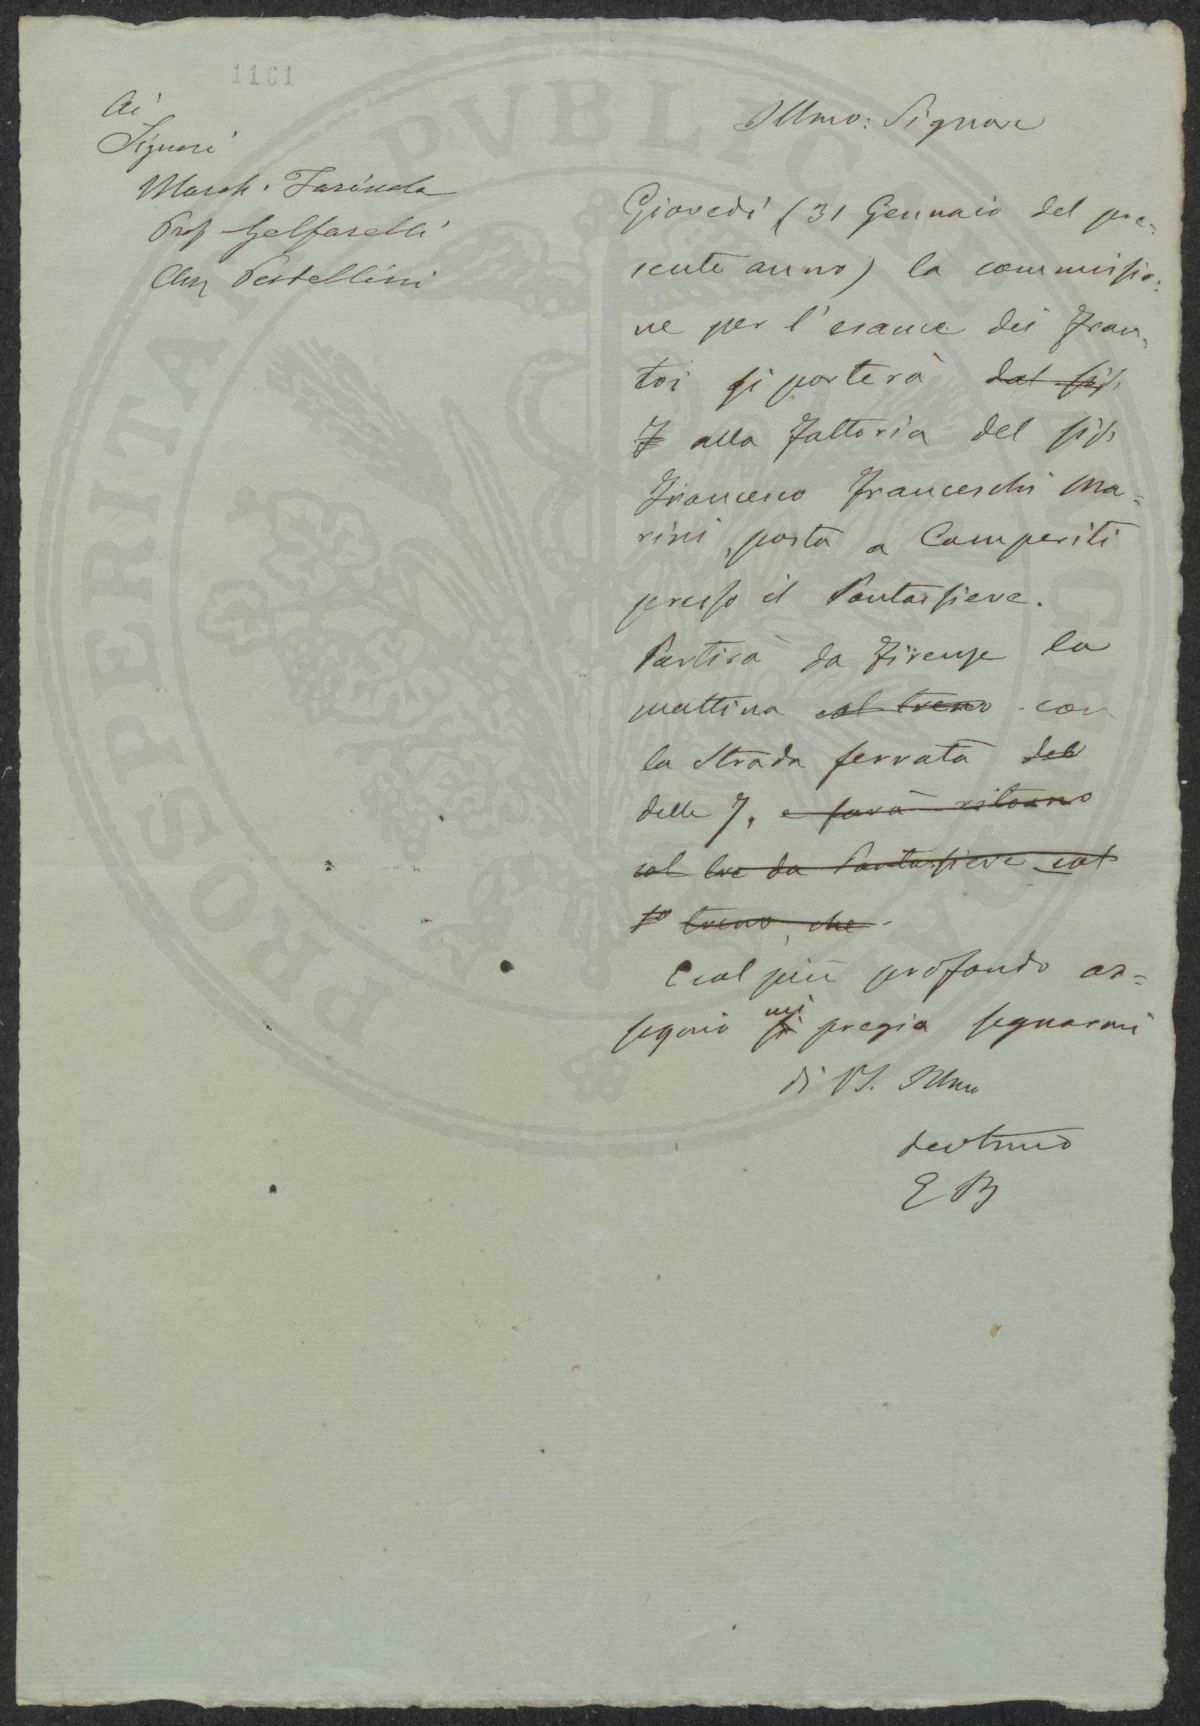 1161
Ai
Signori
March. Farinola
Prof Gelfarelli
Cav Pestellini
Illmo: Signore
Giovedì (31 Gennaio del pre-
sente anno) la commissio-
ne per l'esame dei Fran-
toi si porterà dal sig.
F alla Fattoria del sig.
Francesco Franceschi Ma-
rini, posta a Camperiti
presso il Pontassieve.
Partirà da Firenze la
mattina col treno con
la Strada ferrata del
delle 7, e farà ritorno
col tre da Pontassieve col
treno, che
E col più profondo os-
sequio mi pregio segnarmi
di VS. Illma
devotmo
E B
PVBLICAE
PROSPERITATI